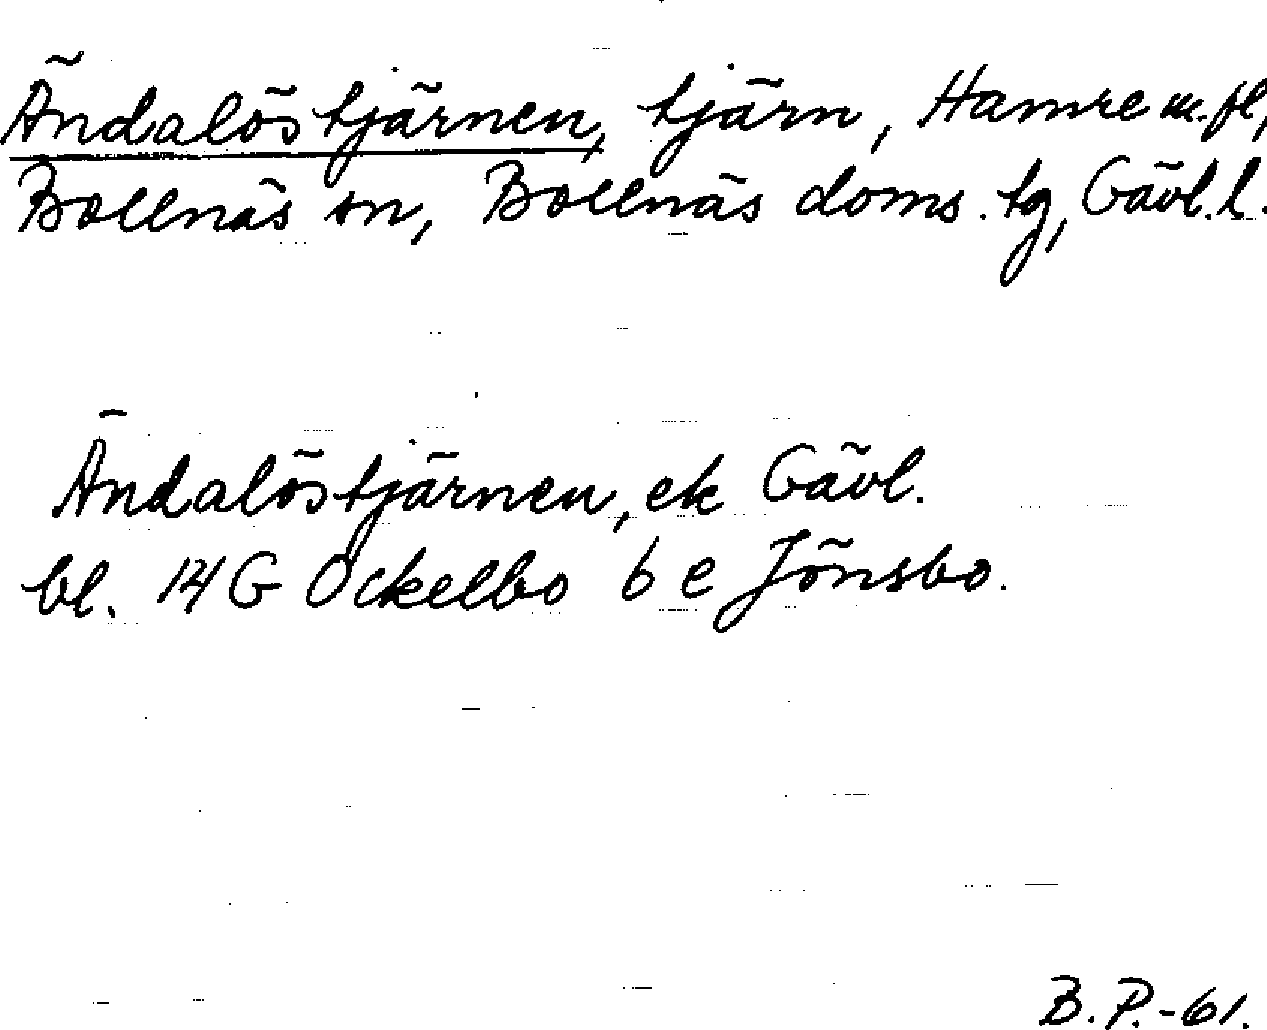 Ändalöstjärnen, tjärn, Hamre m.fl,
Bollnäs sn, Bollnäs doms. tg, Gävl.l.
Ändalöstjärnen, ek Gävl.
bl. 14 G Ockelbo 6 e Jönsbo.
B.P.-61.